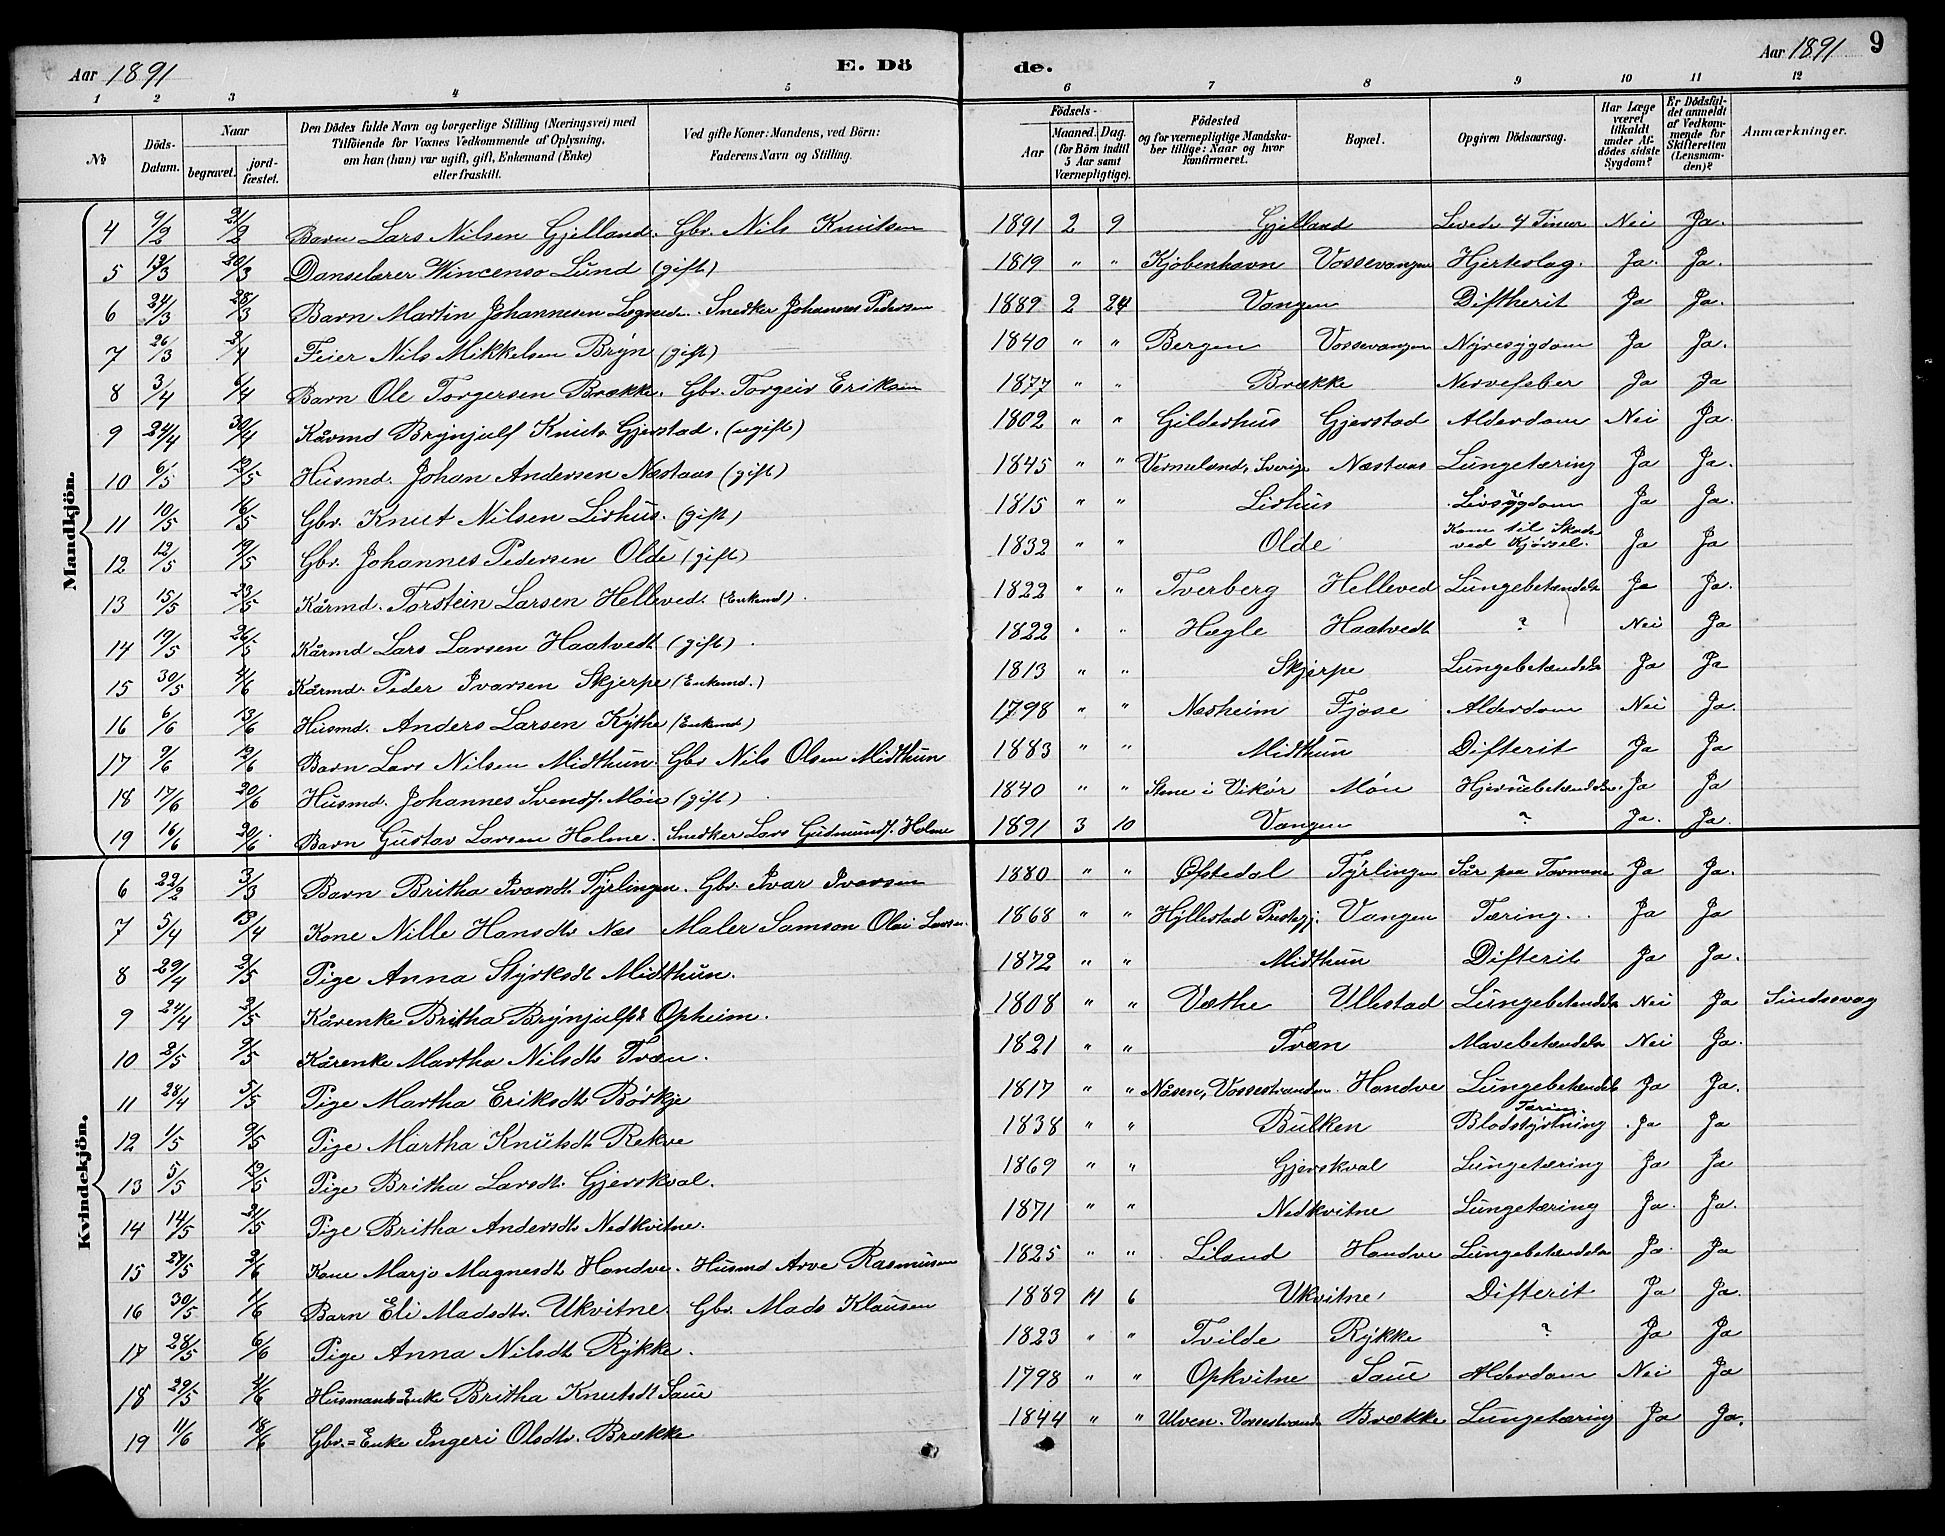 Aar 1891 E. Dö de. Aar 1891 9
1 2 3 4 5 6 7 8 9 10 11 12
No Döds-Datum. Naar begravet. jord-fæstet. Den Dödes fulde Navn og borgerlige Stilling (Næringsvei) med Tilföiende for Voxnes Vedkommende af Oplysning, om han (hun) var ugift, gift, Enkemand (Enke) eller fraskilt. Ved gifte Koner: Mandens, ved Börn: Faderens Navn og Stilling. Födsels- Aar Maaned. Dag. (for Börn indtil 5 Aar samt Værnepligtige). Födested og for værnepligtige Mandskaber tillige: Naar og hvor konfirmeret. Bopæl. Opgiven Dödsaarsag. Har Læge været tilkaldt under Afdödes sidste Sygdom? Er Dödsfaldet anmeldt af Vedkommende for Skifteretten (Lensmanden)? Anmærkninger.
Mandkjön.
4 9/2 21/2 Barn Lars Nilsen Gjelland. Gbr. Nils Knutsen 1891 2 9 Gjelland Levede 4 Timer Nei Ja.
5 13/3 20/3 Danselærer Wincenso Lund (gift) 1819 " " Kjøbenhavn Vossevangen Hjerteslag. Ja. Ja.
6 24/3 28/3 Barn Martin Johannesen Løgneden. Snedker Johannes Pedersen 1889 2 24 Vangen Diftherit Ja Ja.
7 26/3 2/4 Feier Nils Mikkelsen Bryn (gift) 1840 " " Bergen Vossevangen Nyresygdom Ja Ja.
8 3/4 6/4 Barn Ole Torgersen Brække. Gbr. Torgeir Eriksen 1877 " " Brække Nervefeber Ja Ja
9 24/4 30/4 Kårmd Brynjulf Knuts Gjerstad. (ugift) 1802 " " Gilderhus Gjerstad Alderdom Nei Ja.
10 6/5 12/5 Husmd. Johan Andersen Næstaas (gift) 1845 " " Vermeland, Sverige Næstaas Lungetæring Ja Ja.
11 10/5 16/5 Gbr. Knut Nilsen Lirhus. (gift) 1815 " " Lirhus Livsygdom Ja Ja.
12 12/5 19/5 Gbr. Johannes Pedersen Olde (gift) 1832 " " Olde Kom til Skade ved Kjørsel. Ja Ja
13 15/5 23/5 Kårmd. Torstein Larsen Helleved. (Enkemd). 1822 " " Tverberg Helleved Lungebetændelse Ja Ja.
14 19/5 26/5 Kårmd Lars Larsen Haatvedt (gift). 1822 " " Hægle Haatvedt ? Nei Ja
15 30/5 4/6 Kårmd. Peder Ivarsen Skjerpe (Enkemd.) 1813 " " Skjerpe Lungebetændelse Ja Ja
16 6/6 13/6 Husmd. Anders Larsen Kythe (Enkemd) 1798 " " Næsheim Fjose Alderdom Nei Ja.
17 9/6 12/6 Barn Lars Nilsen Midthun. Gbr Nils Olsen Midthun 1883 " " Midthun Difterit Ja Ja
18 17/6 20/6 Husmd. Johannes Svends. Møn (gift) 1840 " " Stene i Vikør Møn Hjernebetændelse. Ja Ja
19 16/6 20/6 Barn Gustav Larsen Holme. Snedker Lars Gudmunds. Holme 1891 3 10 Vangen ? Ja. Ja.
Kvindekjön.
6 22/2 3/3 Barn Britha Ivarsdt. Tyrlingen. Gbr. Ivar Ivarsen 1880 " " Øfstedal Tyrlingen Sår paa Tarmene Ja Ja.
7 5/4 13/4 Kone Nille Hansdtr Næs Maler Samson Olai Larsen. 1868 " " Hyllestad Prestegj. Vangen Tæring. Ja Ja
8 29/4 2/5 Pige Anna Styrksdt Midthun. 1872 " " Midthun Difterit Ja Ja.
9 24/4 2/5 Kårenke Britha Brynjulfsdt Opheim. 1808 " " Væthe Ullestad Lungebetændelse Nei Ja Sindssvag
10 2/5 9/5 Kårenke Martha Nilsdtr Tvæn. 1821 " " Tvæn Mavebetændelse Nei Ja.
11 28/4 5/5 Pige Martha Eriksdtr Børkje 1817 " " Nåsen, Vossestranden. Hondve Lungebetændelse Ja Ja.
12 1/5 9/5 Pige Martha Knutsdt Rekve 1838 " " Bulken Blodstyrtning Tæring. Ja Ja
13 5/5 12/5 Pige Britha Larsdt. Gjerskval. 1869 " " Gjerskval Lungetæring Ja Ja
14 14/5 21/5 Pige Britha Andersdt Nedkvitne. 1871 " " Nedkvitne Lungetæring Ja. Ja.
15 27/5 2/6 Kone Marjo Magnesdt Hondve. Husmd Arve Rasmussen 1825 " " Liland Hondve Lungebetændelse Ja. Ja
16 30/5 1/6 Barn Eli Madsdtr. Ukvitne Gbr. Mads Klausen 1889 11 6 Ukvitne Difterit Ja Ja.
17 28/5 6/6 Pige Anna Nilsdt Rykke. 1823 " " Tvilde Rykke ? Ja Ja
18 29/5 4/6 Husmands Enke Britha Knutsdt Saue 1798 " " Opkvitne Saue Alderdom Nei Ja
19 11/6 18/6 Gbr.=Enke Ingeri Olsdtr. Brække 1844 " " Ulven. Vossestrand Brække Lungetæring Ja Ja.